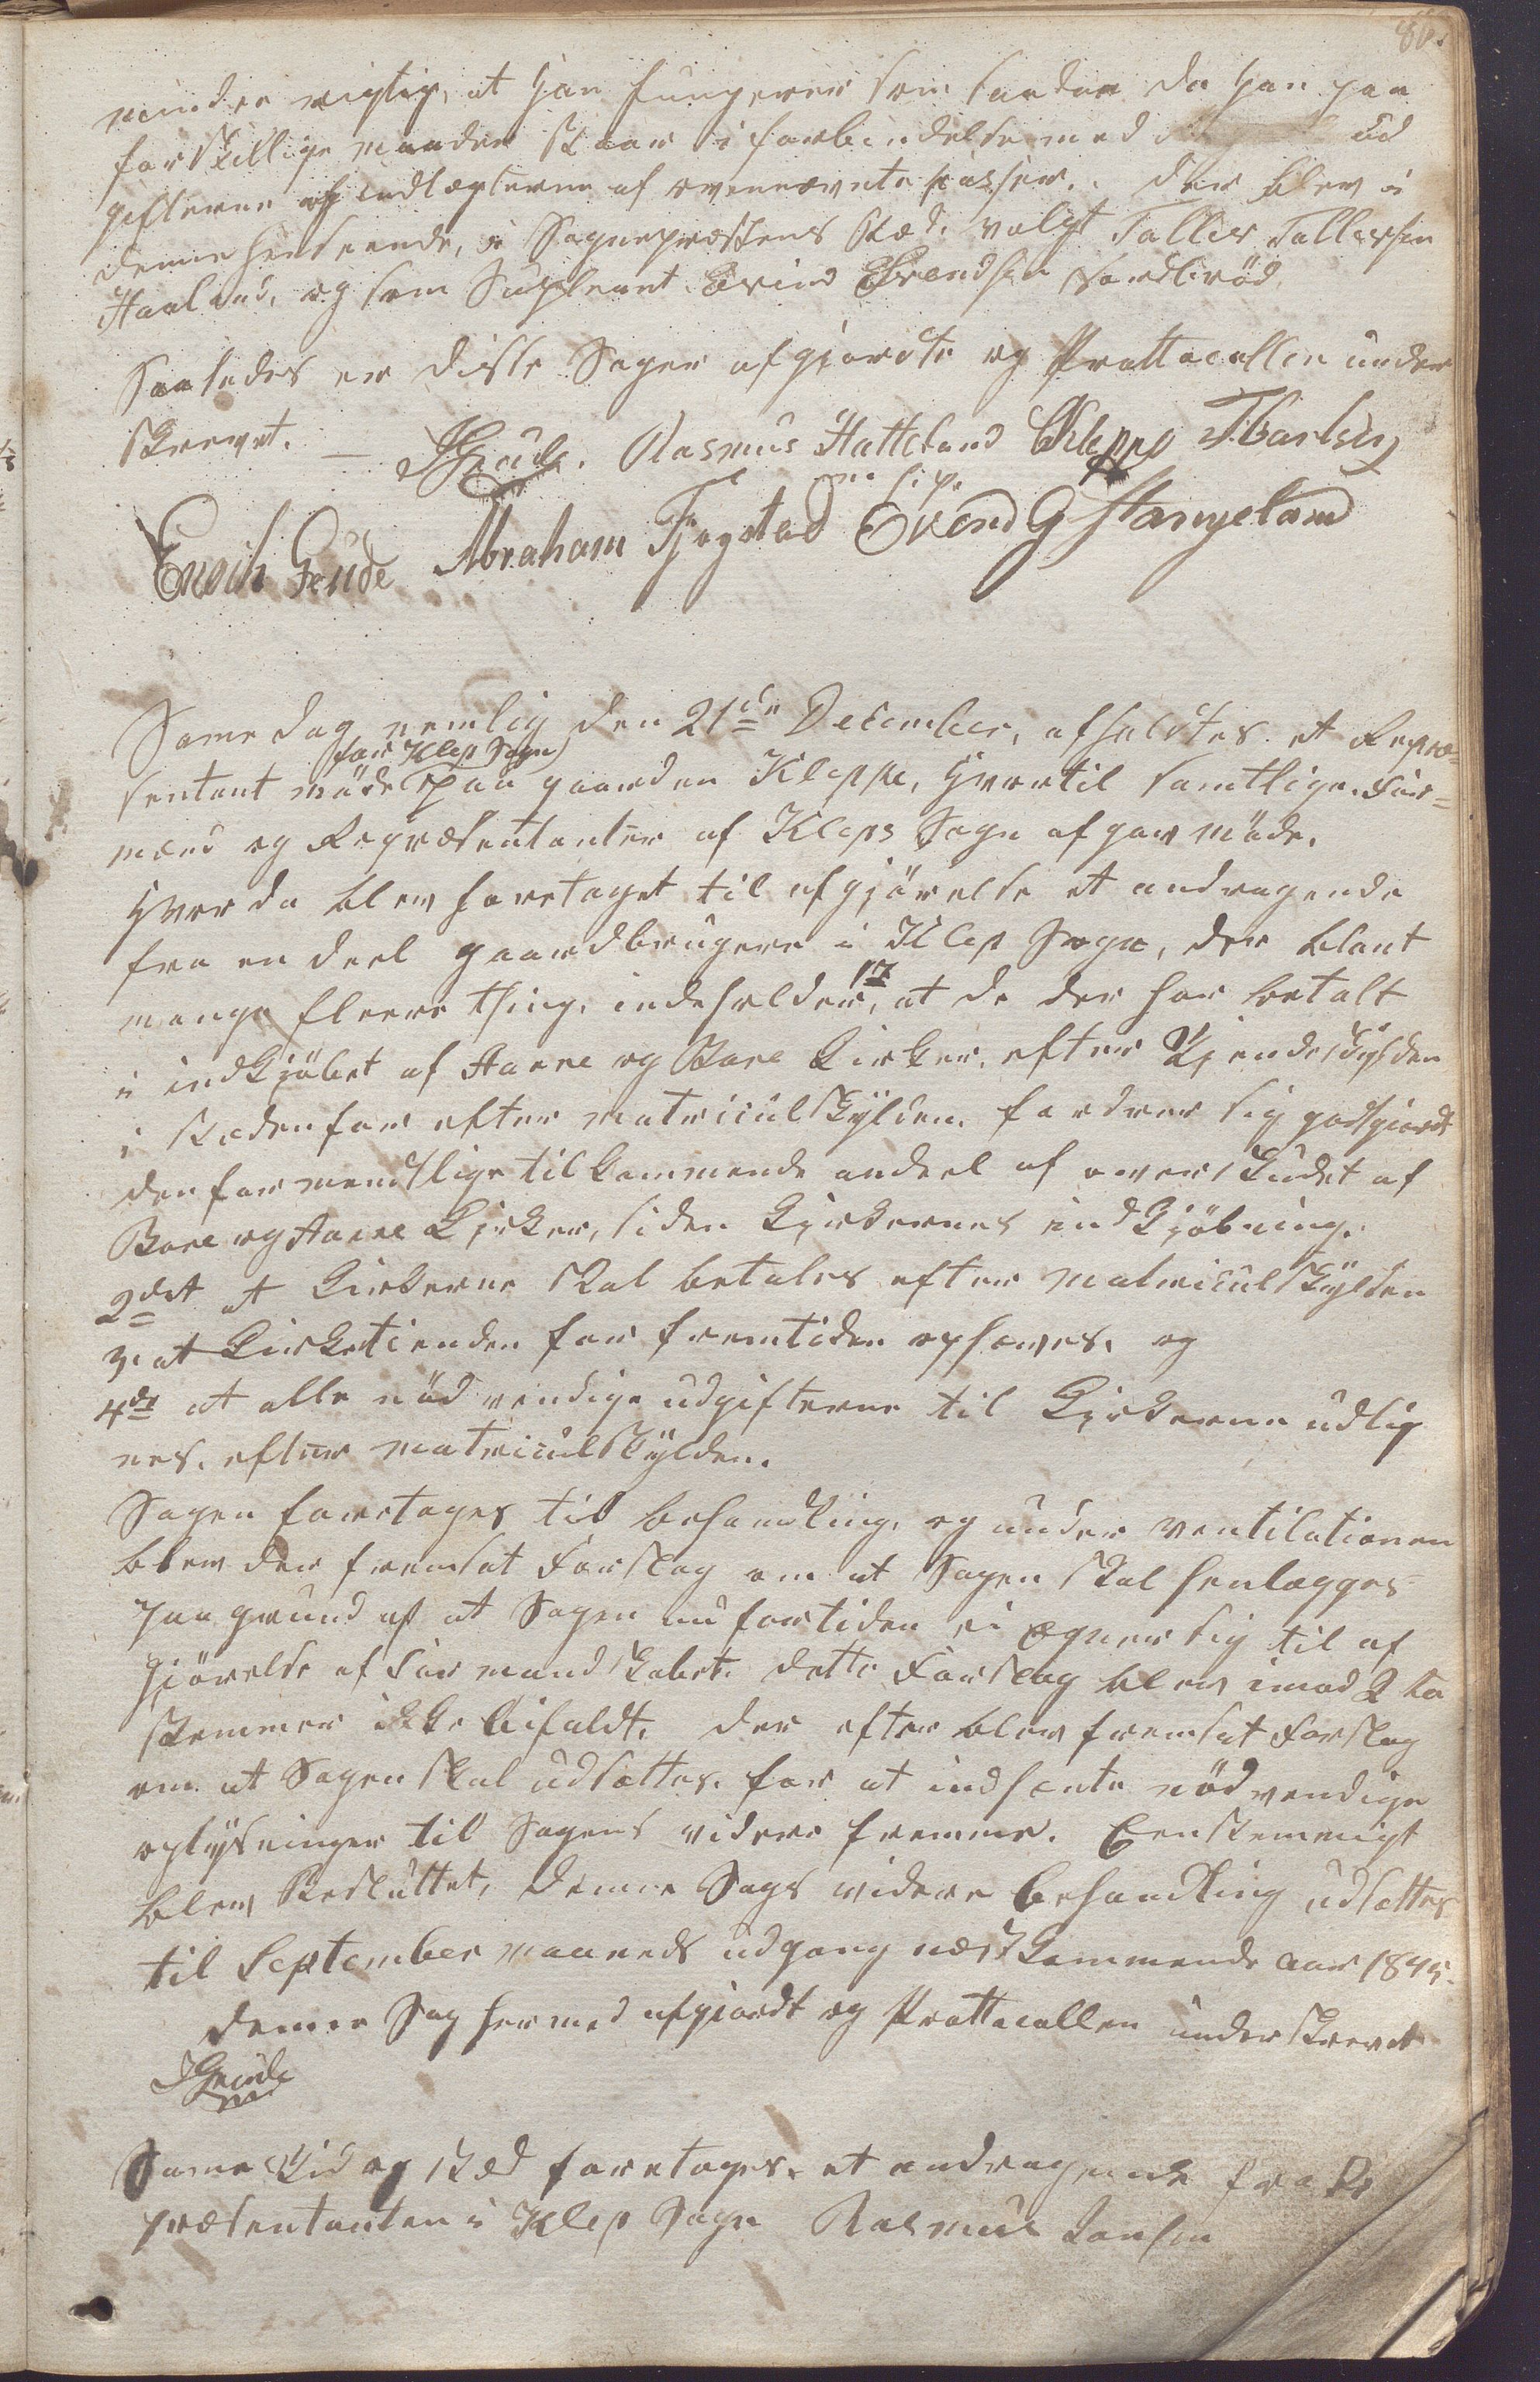 80.
mindre rigtig, at han fungerer som saadan da han paa
forskillige maader staar i forbindelse med ud
gifterne og indtægterne af ovennævnte kasser. Der blev i
denne henseende, i Sognepræstens Sted, valgt Tallies Tallessen
Haaland, og som Suppleant Eivind Evendsen
Saaledes er disse Sager afgjordte og Prottocollen under
skrevet. — Rasmus Hatteland OKleppe T. Carlsen
Enoch Grude Abraham Fjogstad Evend G Stangeland
Same dag nemlig den 21de December, afholdtes et Repræ=
sentant möde for Klep Sogn paa gaarden Kleppe, hvortil samtlige For=
mænd og Repræsentanter af Kleps Sogn afgav möde.
Hvor da blev foretaget til afgjörelse et andragende
fra en deel gaardbrugere i Klep Sogn, der blant
mange fleere thing, indeholder, 1, at de der har betalt
i indkjöbet af Haare og Bore Kirker, efter Tjendeskylden
i stædenfor efter matriculskylden fordrer sig godtgiordt
den formendtlige tilkommende andeel af overskudet af
Bore og Haare Kirker, siden Kirkernes indkjöbning.
2det at Kirkerne skal betales efter matriculskylden
3. at Kirketienden for fremtiden ophæves, og
4de at alle nödvendige udgifterne til Kirkerne udlig
nes. efter matriculskylden.
Sagen foretages til behandling, og under ventilationen
blev der fremsat Forslag om at Sagen skal henlægges
paa grund af at Sagen nu fortiden ei egner sig til af
gjörelse af Formandskabet. dette Forslag blev imod 2 to
stemmer ikke bifaldt. Der efter blev fremsat Forslag
om at Sagen skal udsættes. for at indhente nödvendige
oplysninger til Sagens videre fremme. Eenstemmigt
blev Besluttet, denne Sags videre behandling udsættes
til September maaneds udgang næstkommende aar 1845.
denne Sag hermed afgiordt og Prottocollen underskrevet
Grude
Same tid og stæd foretages et andragende fra Re
præsentanten i Klep Sogn Rasmus Larsen